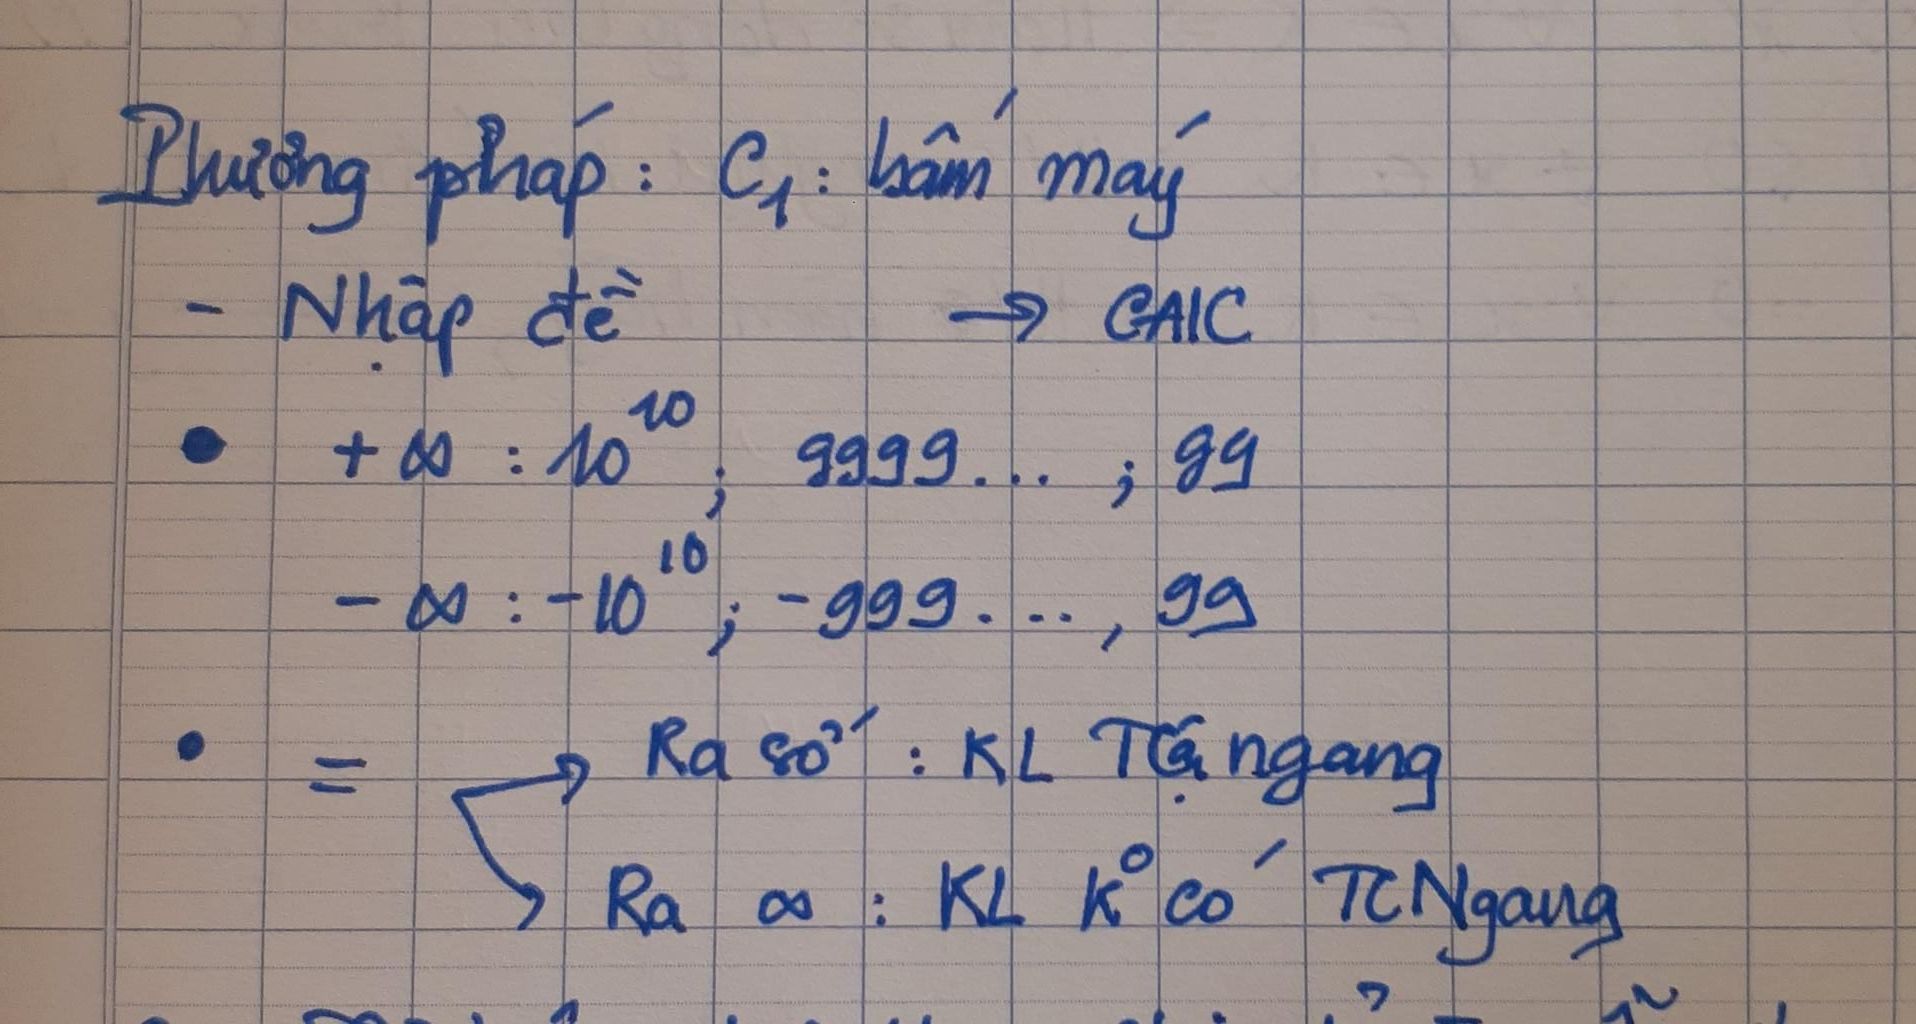 Phương pháp : C1 : bấm máy
- Nhập đề → CAlC
• +∞ : 10^10 ; 9999... ; 99
-∞ : -10^10 ; -999... , 99
• = Ra số : KL TCậ ngang
Ra ∞ : KL K° có TC Ngang